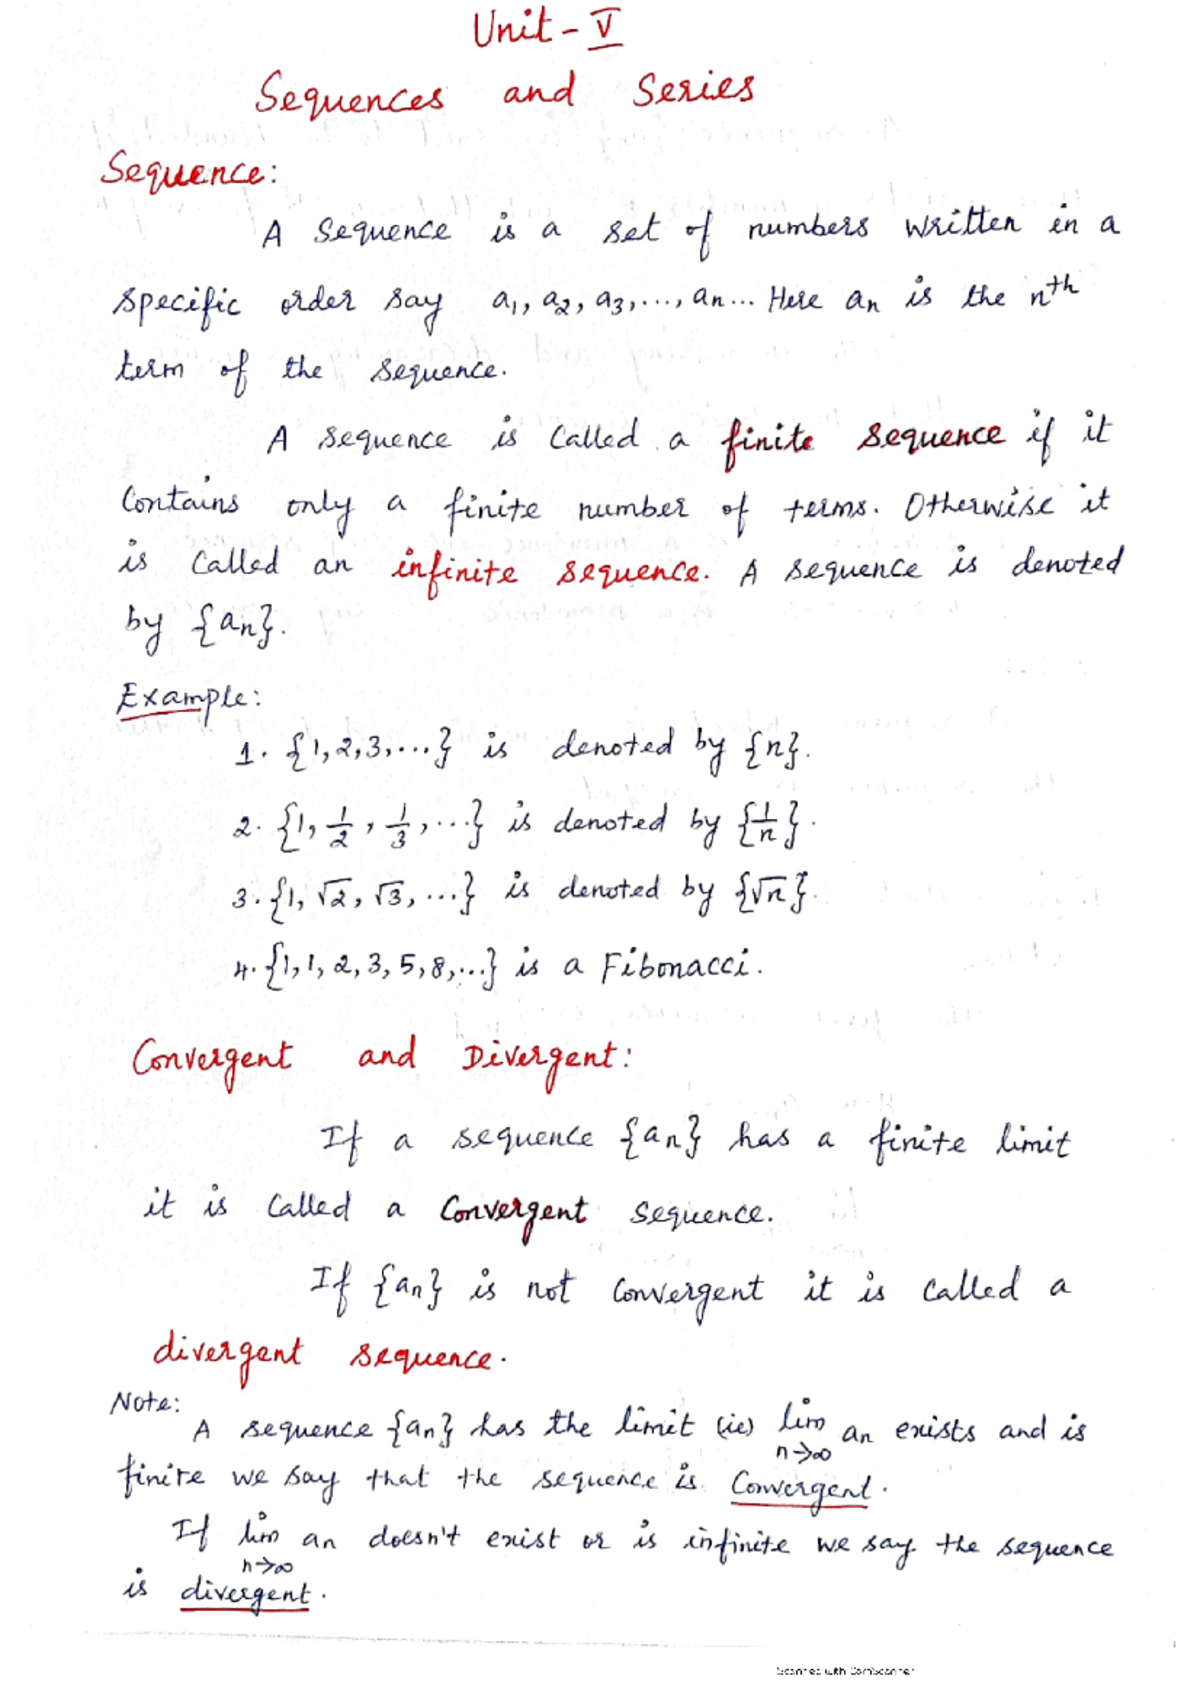 Unit - V
Sequences and Series
Sequence:
A Sequence is a set of numbers written in a
specific order say a₁, a₂, a₃, ..., aₙ... Here aₙ is the nᵗʰ
term of the sequence.
A sequence is called a finite sequence if it
contains only a finite number of terms. Otherwise it
is called an infinite sequence. A sequence is denoted
by {aₙ}.
Example:
1. {1, 2, 3, ...} is denoted by {n}.
2. {1, 1/2, 1/3, ...} is denoted by {1/n}.
3. {1, √2, √3, ...} is denoted by {√n}.
4. {1, 1, 2, 3, 5, 8, ...} is a Fibonacci.
Convergent and Divergent:
If a sequence {aₙ} has a finite limit
it is called a Convergent sequence.
If {aₙ} is not convergent it is called a
divergent sequence.
Note:
A sequence {aₙ} has the limit (ie) lim n→∞ aₙ exists and is
finite we say that the sequence is Convergent.
If lim n→∞ aₙ doesn't exist or is infinite we say the sequence
is divergent.
Scanned with CamScanner